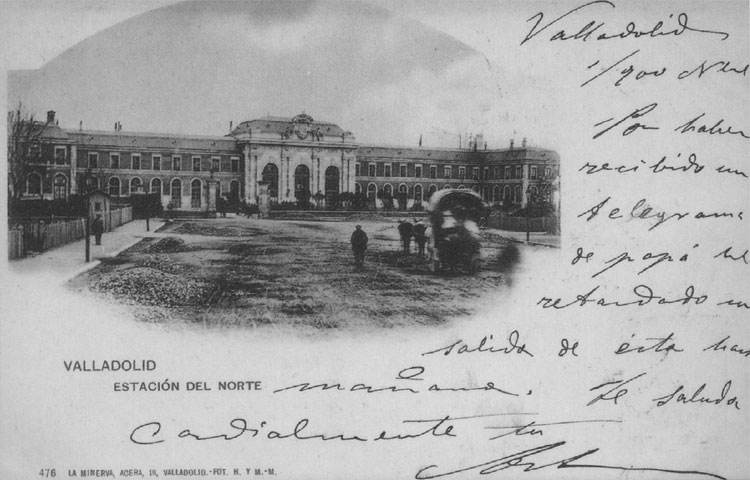 Valladolid
1/900
Por haber
recibido un
telegrama
de papá he
retardado mi
salida de ésta hasta
VALLADOLID
ESTACIÓN DEL NORTE
mañana. Te saluda
Cordialmente tu
476 LA MINERVA, ACERA, 16, VALLADOLID.-FOT. H. Y M.-M.